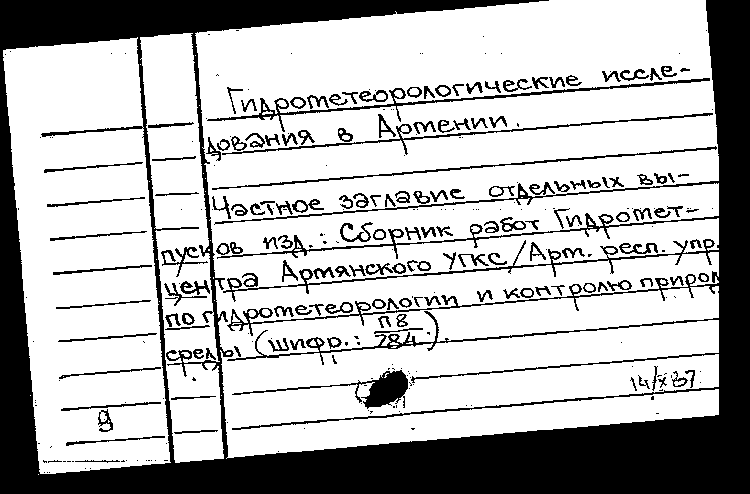 Гидрометеорологические иссле-
дования в Армении.
Частное заглавие отдельных вы-
пусков изд.: Сборник работ Гидромет-
центра Армянского УГКС/Арм. респ. упр.
по гидрометеорологии и контролю природ
среды (шифр.: П8/284.).
14/X 87
9